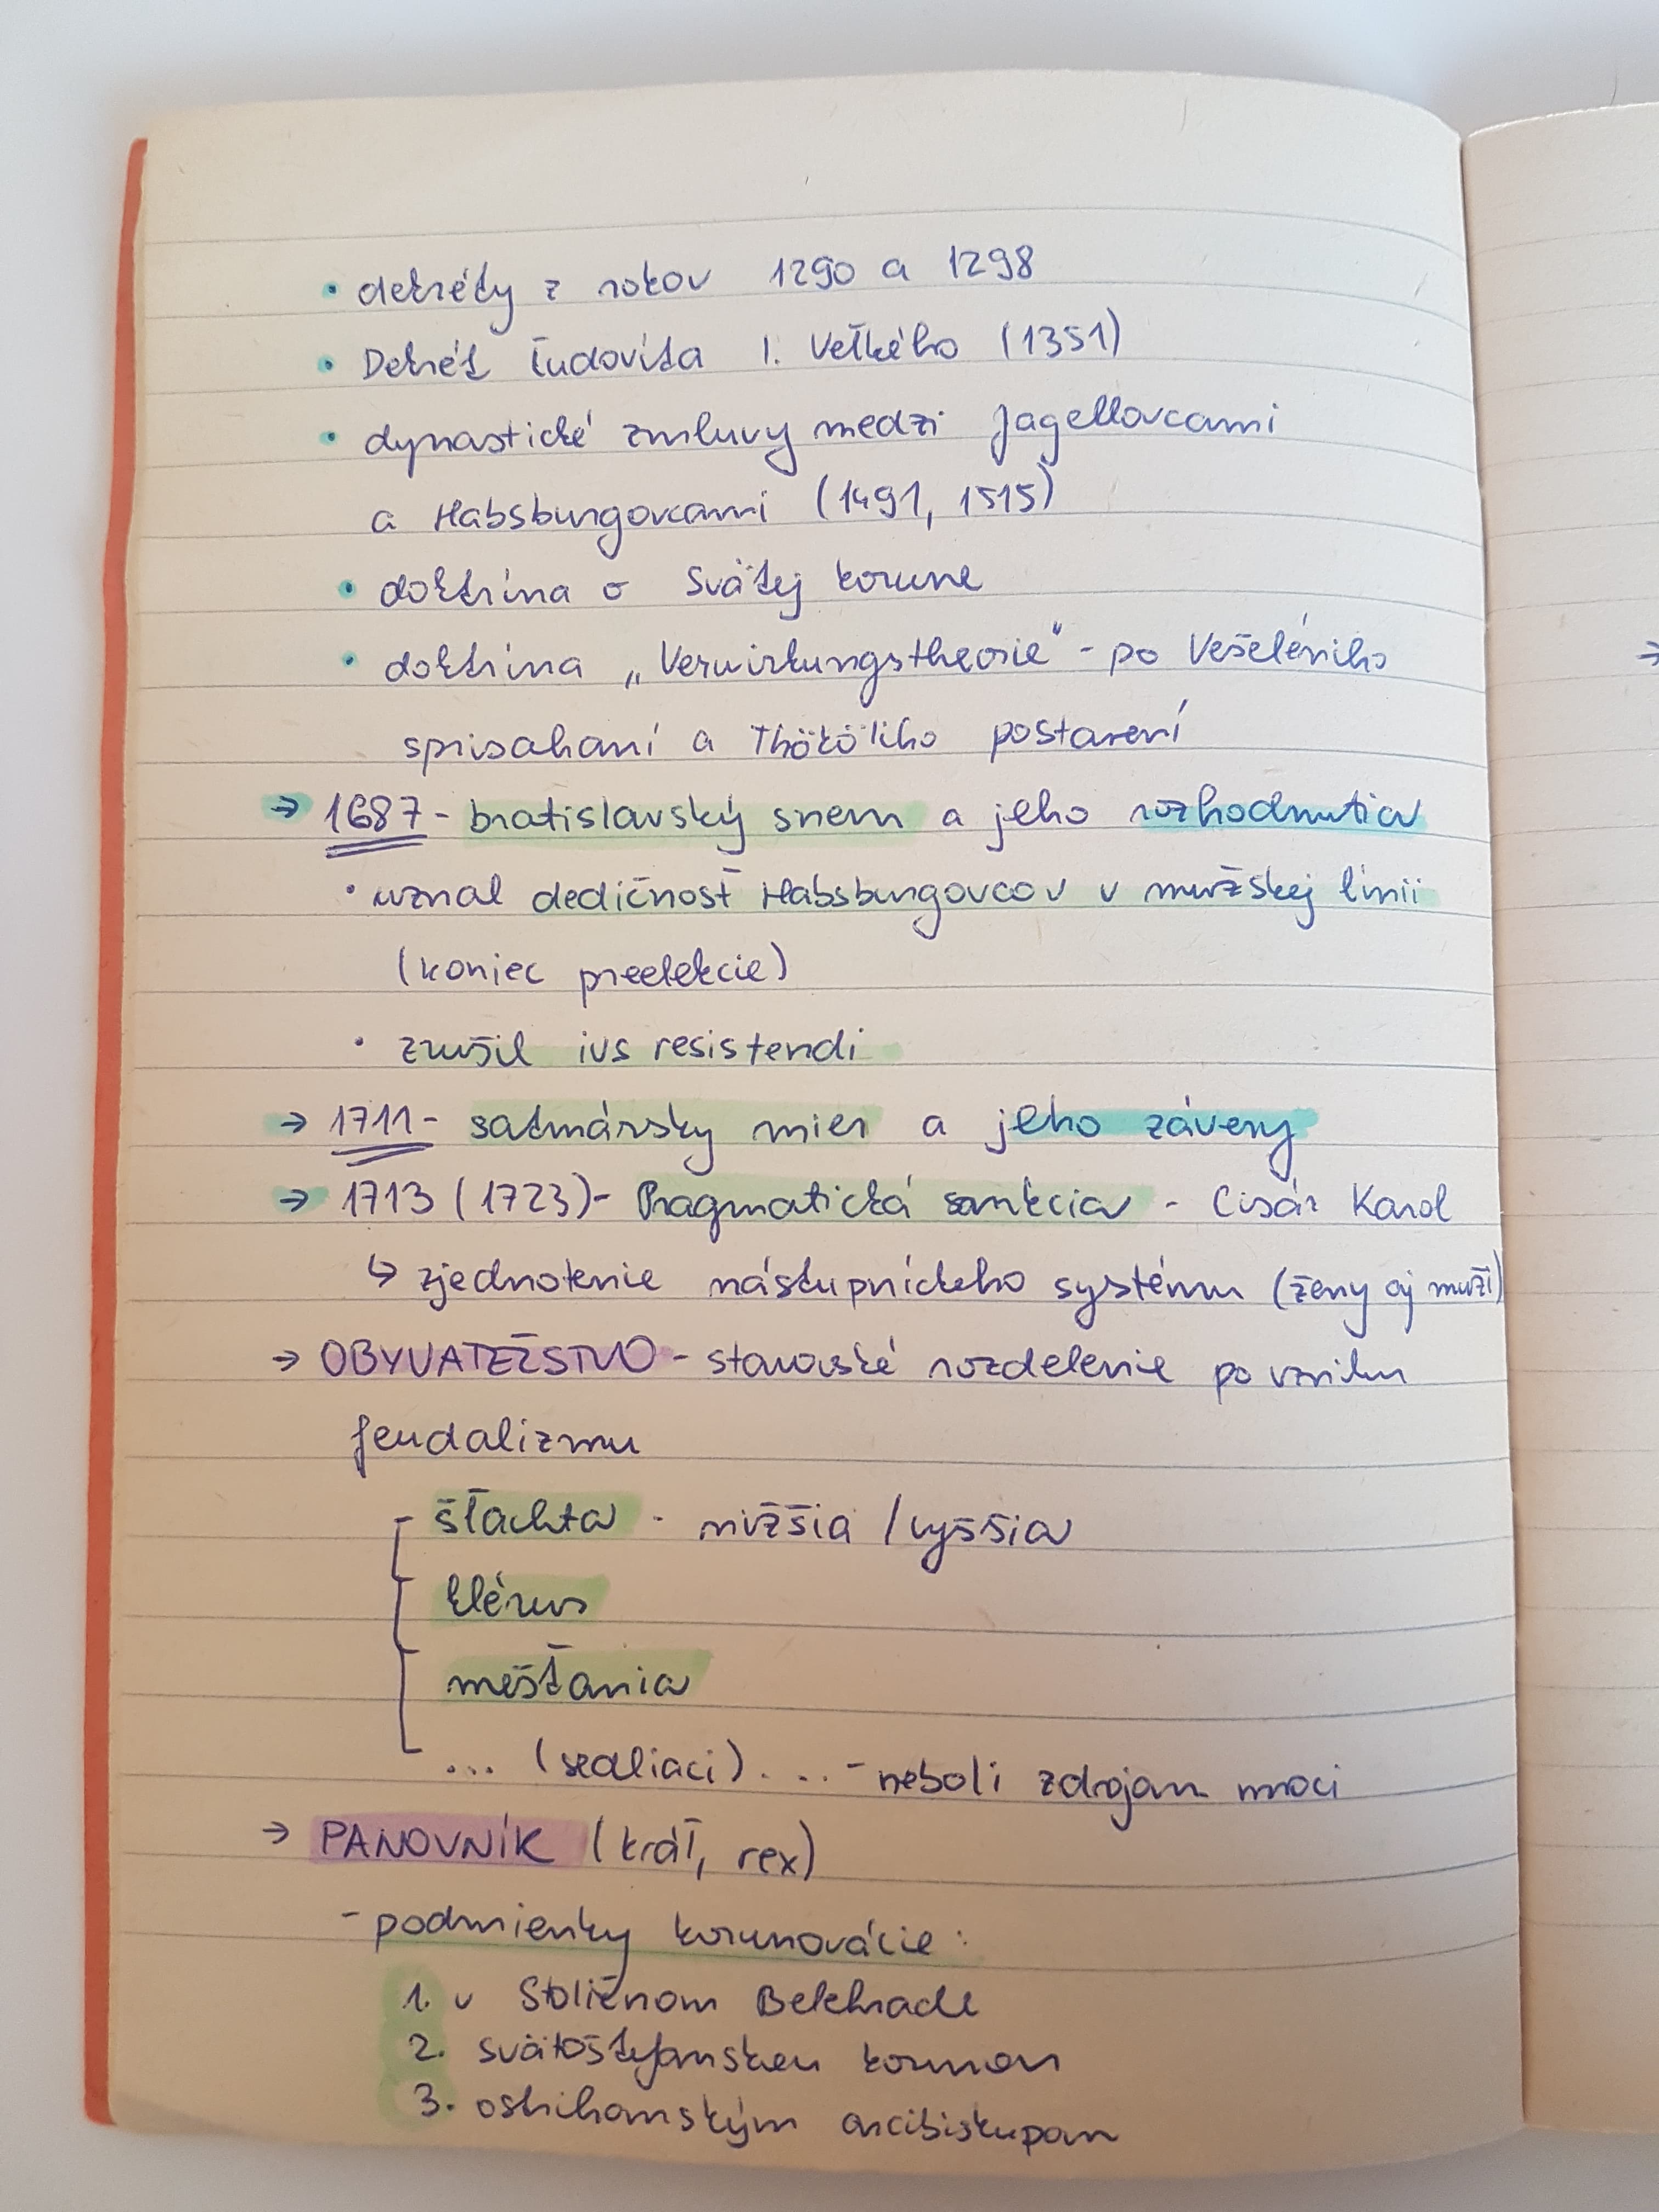 • dekréty z rokov 1290 a 1298
• Dekrét Ľudovíta I. Veľkého (1351)
• dynastické zmluvy medzi Jagellovcami
a Habsburgovcami (1491, 1515)
• doktrína o Svätej korune
• doktrína „Verwirkungstheorie" - po Vešeléniho
sprisahaní a Thököliho postavení
→ 1687 - bratislavský snem a jeho rozhodnutia
• uznal dedičnosť Habsburgovcov v mužskej línii
(koniec preelekcie)
• zrušil ius resistendi
→ 1711 - satmársky mier a jeho závery
→ 1713 (1723) - Pragmatická sankcia - Cisár Karol
↳ zjednotenie nástupníckeho systému (ženy aj muži)
→ OBYVATEĽSTVO - stavovské rozdelenie po vzniku
feudalizmu
- šľachta - nižšia / vyššia
klérus
mešťania
... (sedliaci) ... - neboli zdrojom moci
→ PANOVNÍK (kráľ, rex)
- podmienky korunovácie:
1. v Stoličnom Belehrade
2. svätoštefanskou korunou
3. ostrihomským arcibiskupom
→